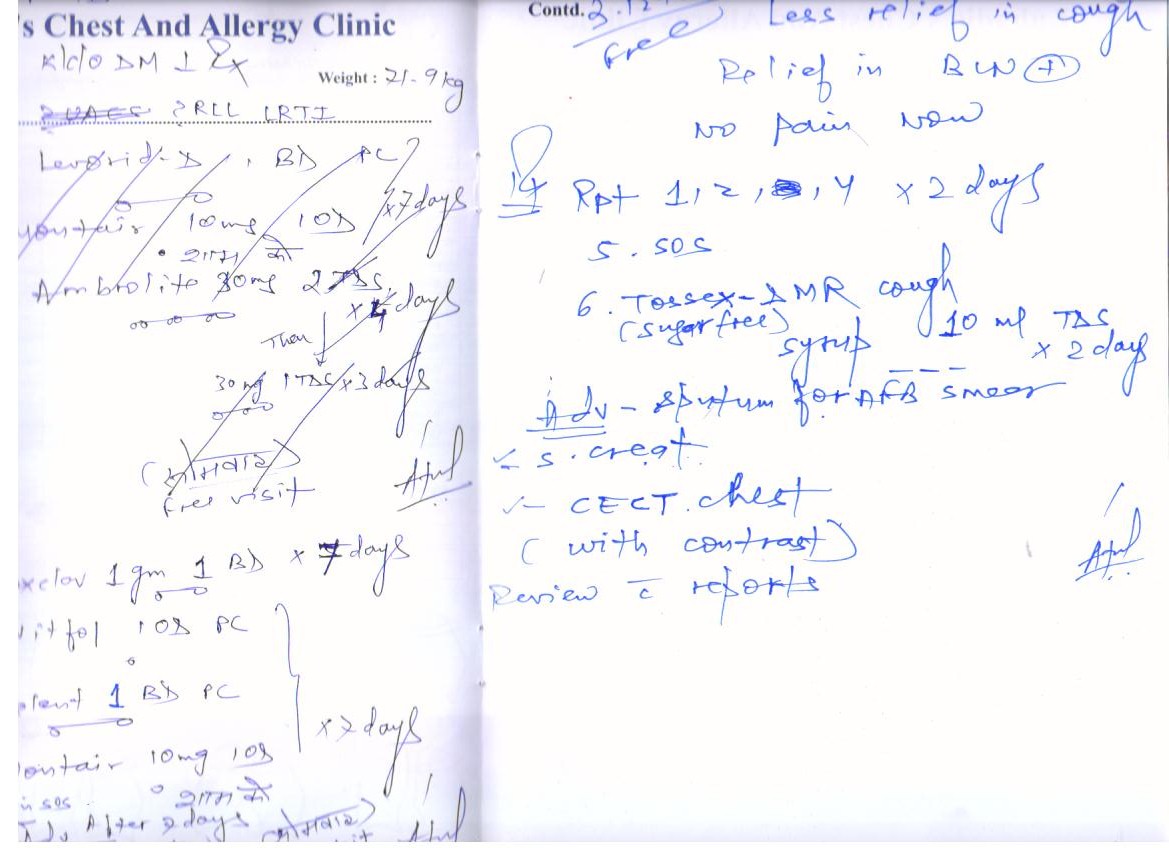 's Chest And Allergy Clinic
K/c/o DM
Weight : 71.9 kg
? RLL LRTI
Levorid-D 1 BD PC
x 7 days
ontair 10mg 1OD
शाम को
Ambrolite 30mg 2 TDS
x 4 days
Then
30mg 1 TDS x 3 days
(सोमवार)
free visit
xclav 1gm 1 BD x 7 days
itfol 1OD PC
plent 1 BD PC
x 7 days
ontair 10mg 1OD
शाम को
in SOS
Adv After 7 days (सोमवार)
Contd. 3.12
Free
Less relief in cough
Relief in
No pain now
Rpt 1, 2, , 4 x 2 days
5. SOS
6. Tossex-DMR cough
(sugar free)
syrup 10 ml TDS
x 2 days
Adv - sputum for AFB smear
- S. creat
- CECT. chest
(with contrast)
Review c̄ reports